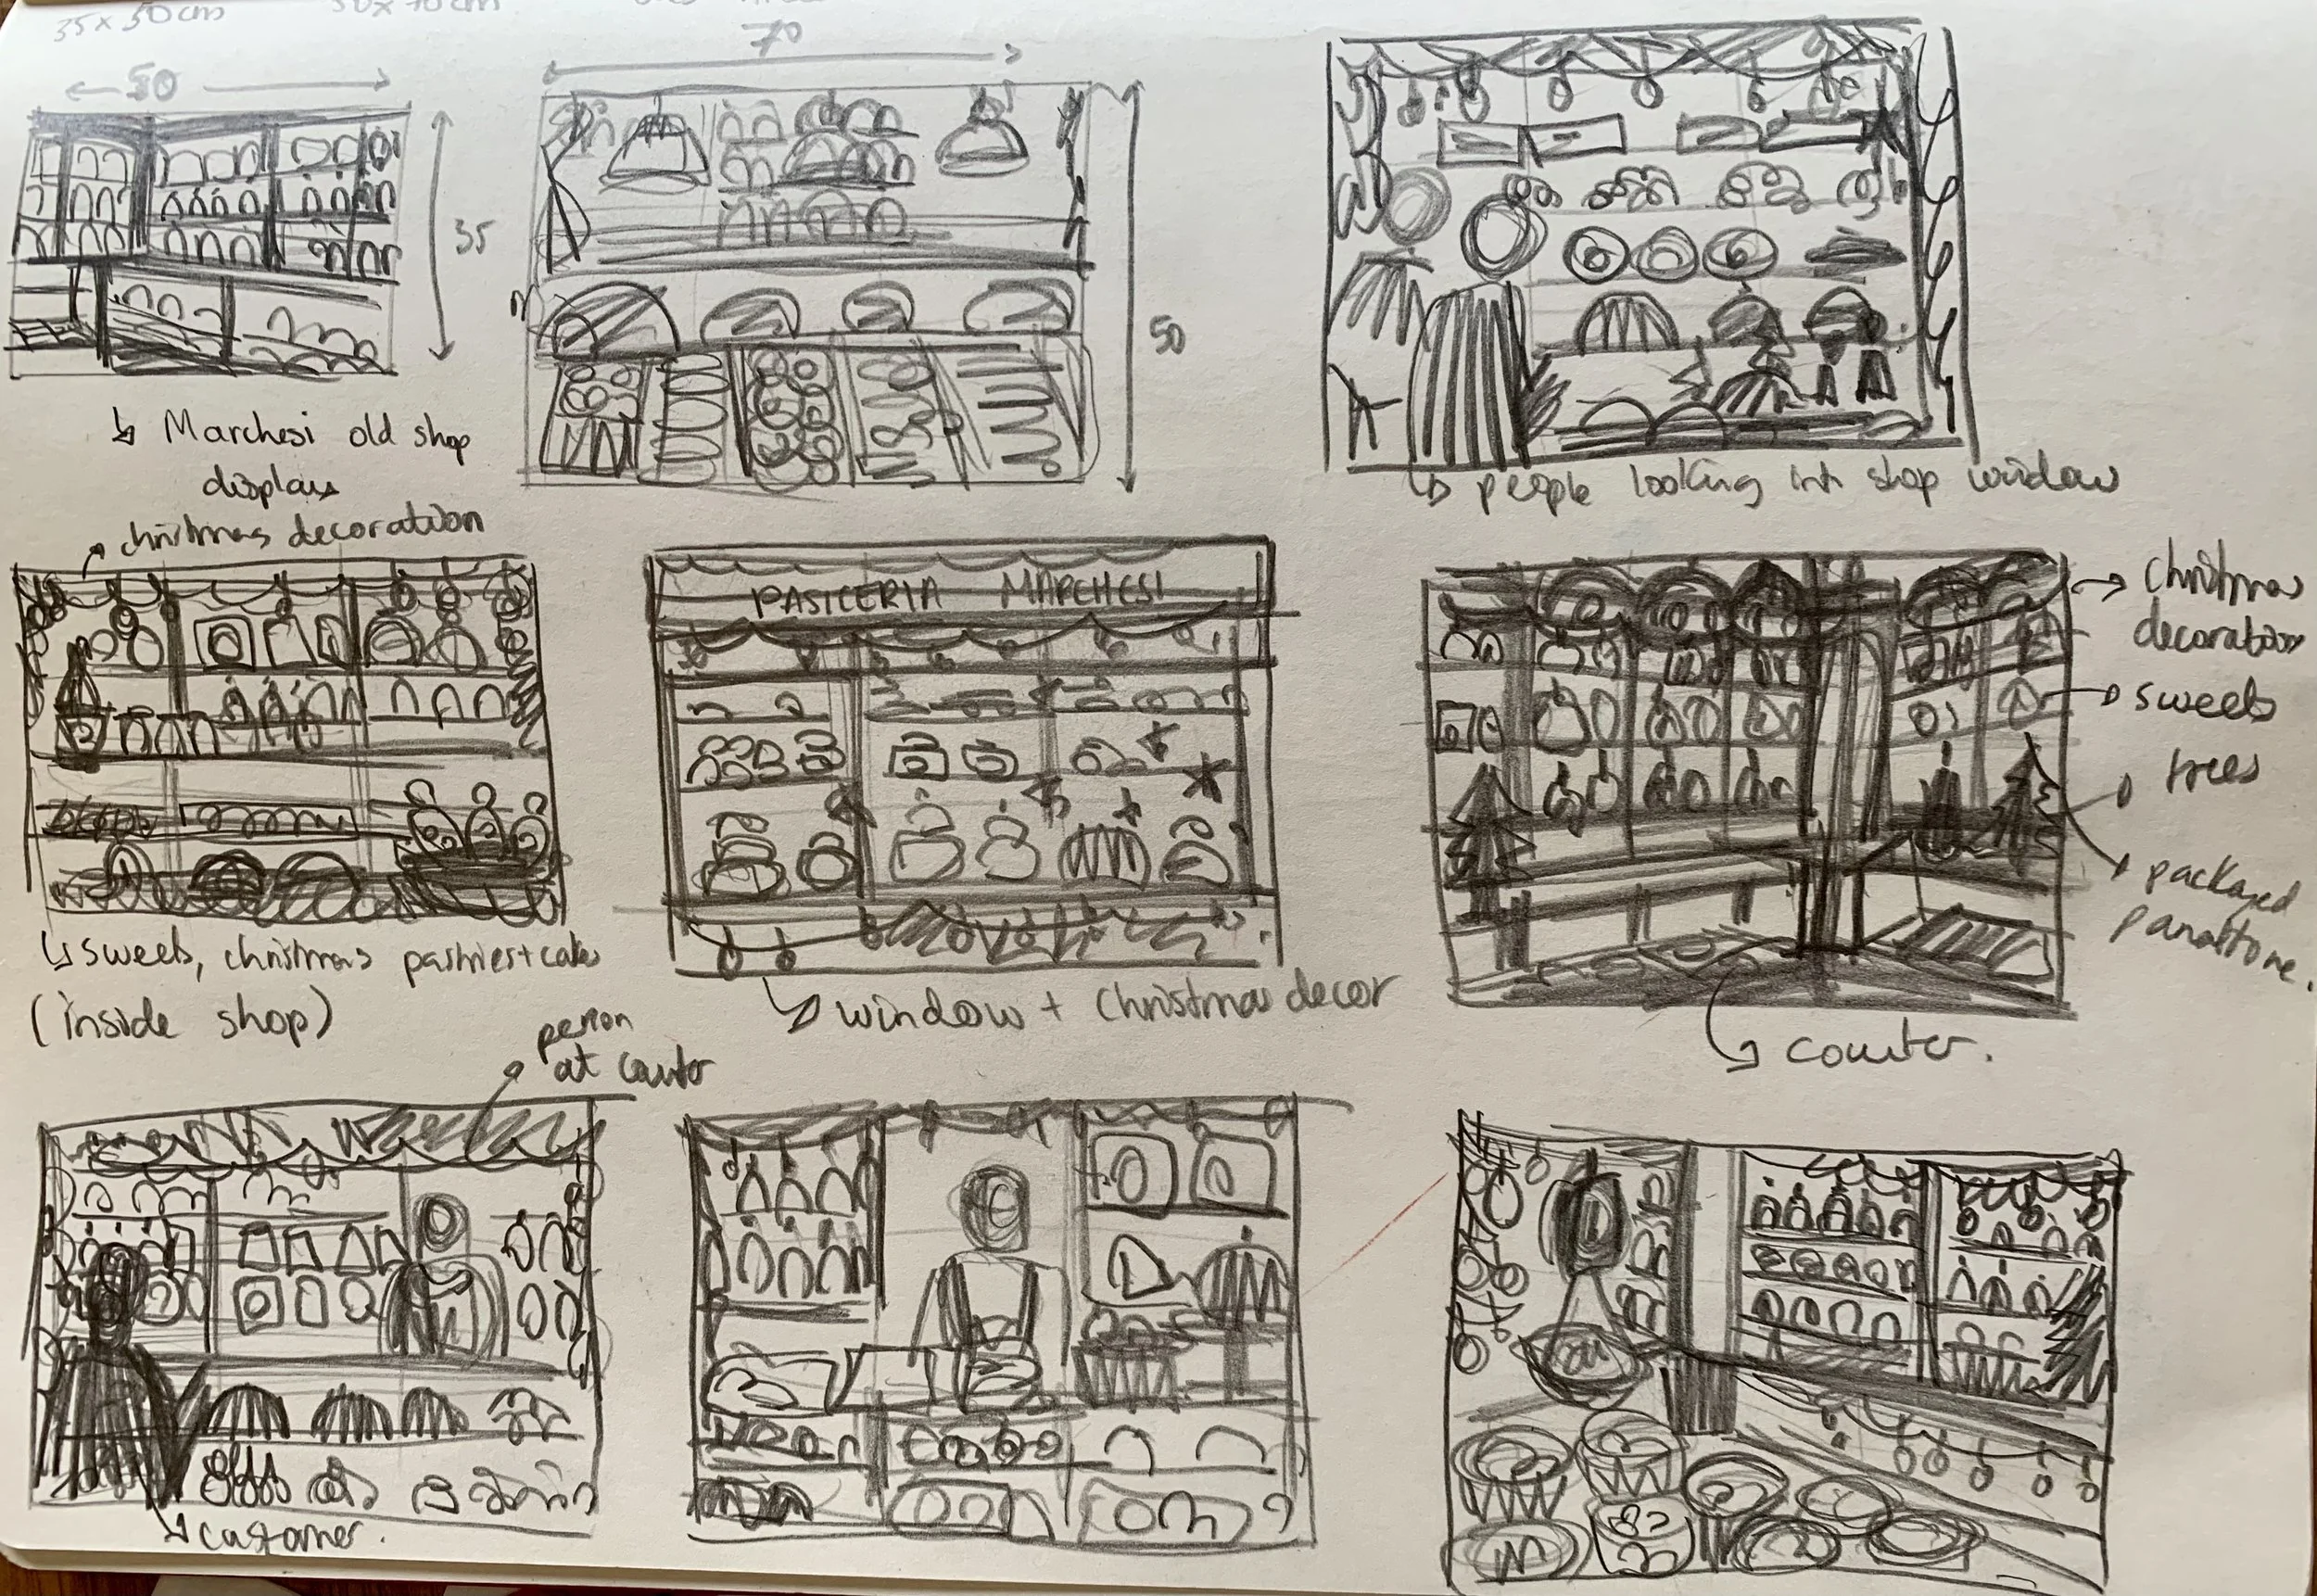 35 x 50 cm
50 x 70 cm
50
35
70
50
Marchesi old shop
displays
people looking into shop window
christmas decoration
sweets, christmas pastries + cakes
(inside shop)
PASICERIA MARCHESI
window + Christmas decor
christmas
decoration
sweets
trees
packaged
panettone.
counter.
person
at counter
customer.